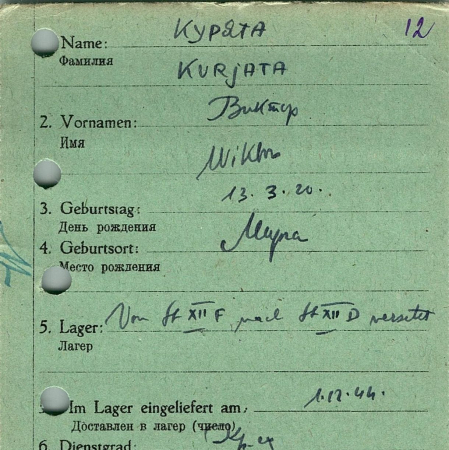 12
Name: КУРЯТА
Фамилия
KURJATA
2. Vornamen: Виктор
Имя
Wiktor
13. 3. 20.
3. Geburtstag:
День рождения
4. Geburtsort: Мирга
Место рождения
5. Lager: Von St XII F nach St XII D versetzt
Лагерь
Im Lager eingeliefert am 1.12.44.
Доставлен в лагерь (число)
6. Dienstgrad: Кр-ец